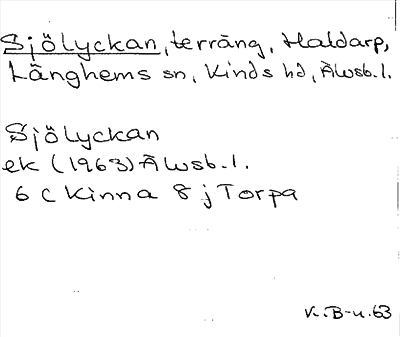 Sjölyckan, terräng, Haldarp,
Länghems sn, Kinds hd, Älvsb. l.
Sjölyckan
ek (1963) Älvsb. l.
6 C Kinna 8 j Torpa
V. B-u. 63